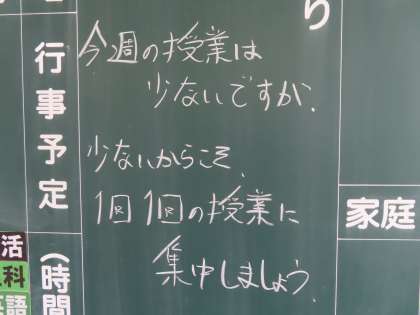 今週の授業は
少ないですが、
少ないからこそ、
1回1回の授業に
集中しましょう。
行事予定
（時間
家庭
り
活
科
語